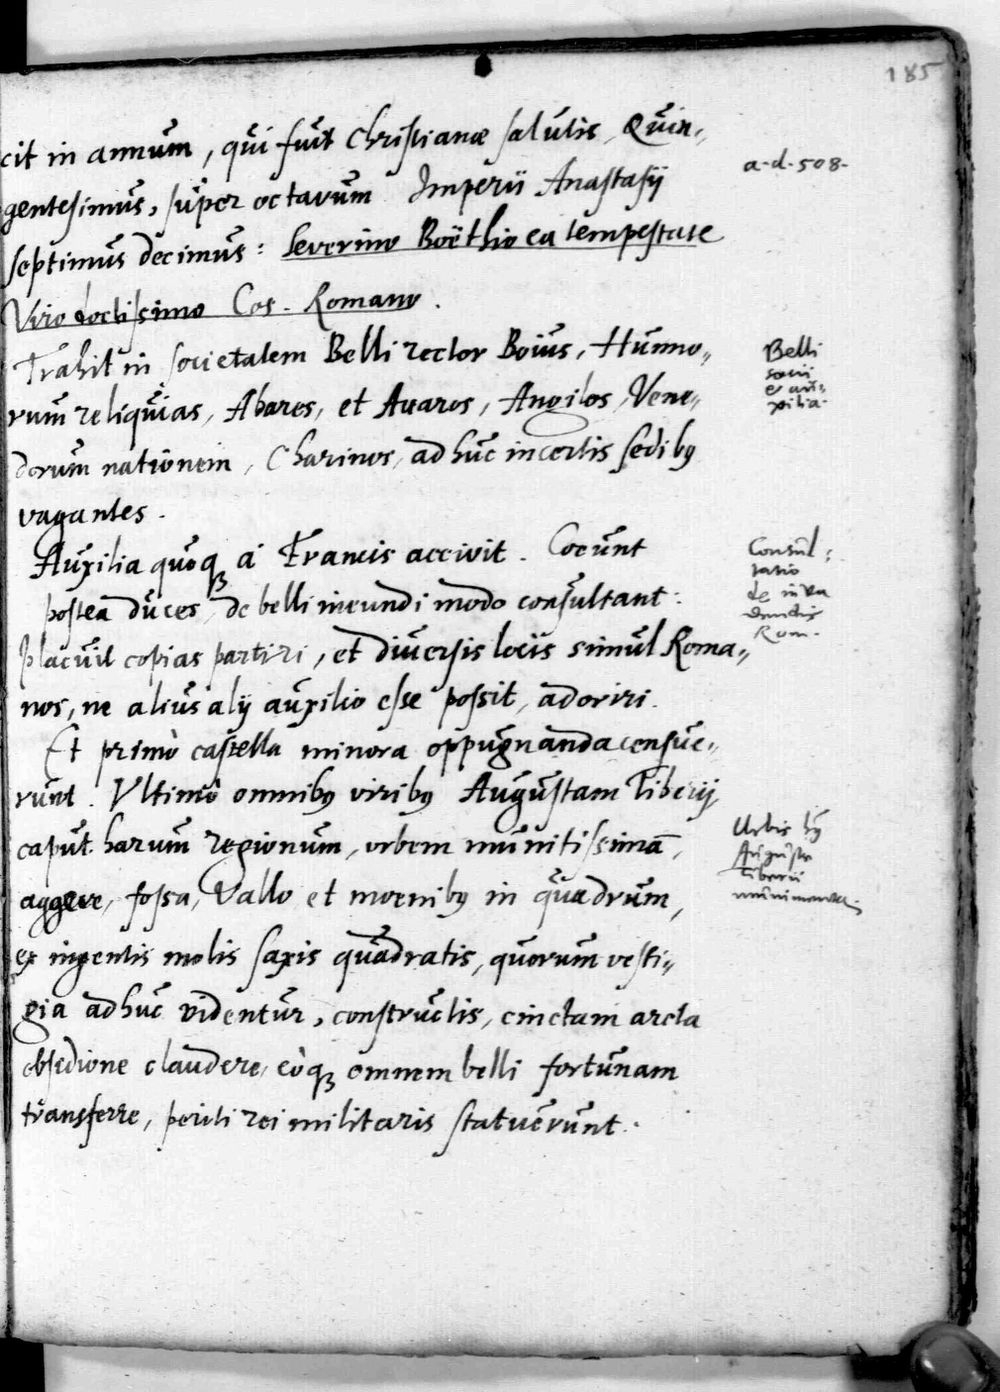 185
cit in annum, qui fuit Christianæ salutis, Quin,,
a.d.508.
gentesimus, super octavum Imperii Anastasij
septimus decimus: Severino Boëthio ea tempestate
Viro doctissimo Cos. Romano.
Trahit in societatem Belli rector Boius, Hunno,,
Belli
socii
et au:
xilia.
rum reliquias, Abares, et Avares, Angilos, Vene,,
dorum nationem, Charinos, adhuc incertis sedibꝫ
vagantes.
Auxilia quoqꝫ a Francis accivit. Coeunt
Consul:
tatio
de inva
dendis
Rom.
postea duces, de belli ineundi modo consultant:
placuit copias partiri, et diversis locis simul Roma,,
nos, ne alius alij auxilio esse possit, adoriri.
Et primò castella minora oppugnanda censue,,
runt. Ultimò omnibꝫ viribꝫ Augustam Tiberij
caput harum regionum, urbem munitissimā,
Urbis
Augustæ
Tiberii
munimenta.
aggere, fossa, Vallo et moenibꝫ in quadrum,
ex ingentis molis saxis quadratis, quorum vesti,,
gia adhuc videntur, constructis, cinctam arcta
obsidione claudere, eòqꝫ omnem belli fortunam
transferre, periti rei militaris statuerunt.